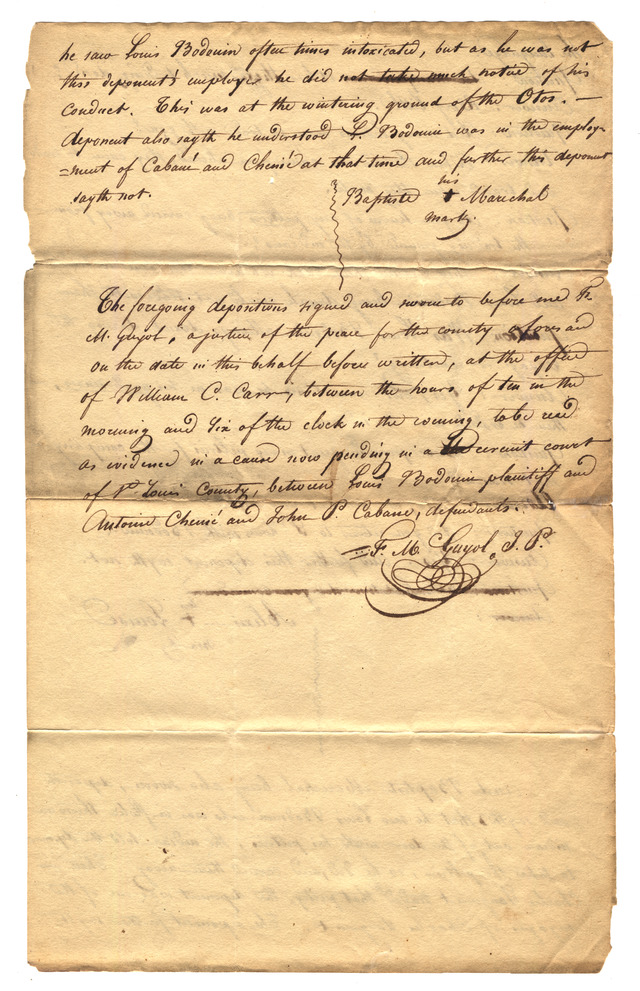 he saw Louis Bodouin often times intoxicated, but as he was not
this deponent's employe he did not take much notice of his
conduct. This was at the wintering ground of the Otos. —
deponent also sayth he understood L. Bodouin was in the employ-
=ment of Cabané and Chenié at that time and further this deponent
sayth not.
his
Baptiste + Marechal
mark.
The foregoing depositions signed and sworn to before me Fs
M. Guyol, a justice of the peace for the county and
on the date in this behalf before written, at the office
of William C. Carr, between the hours of ten in the
morning and six of the clock in the evening, to be read
as evidence in a cause now pending in a circuit court
of St. Louis County, between Louis Bodouin plaintiff and
Antoine Chenié and John P. Cabane, defendants.
F. M. Guyol, J. P.